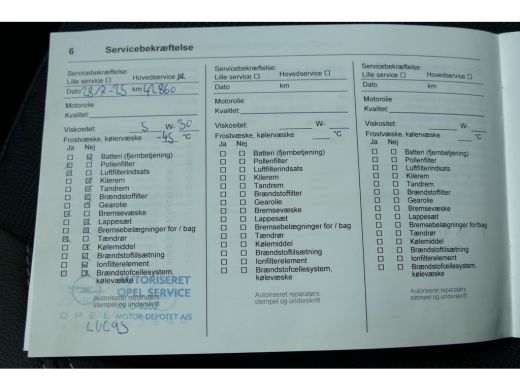 6 Servicebekræftelse
Servicebekræftelse:
Lille service ☐ Hovedservice ☒
Dato 28/7-25 km 42860
Motorolie
Kvalitet
Viskositet: 5 W-30
Frostvæske, kølervæske -45 °C
Ja Nej
Batteri (fjernbetjening)
Pollenfilter
Luftfilterindsats
Kilerem
Tandrem
Brændstoffilter
Gearolie
Bremsevæske
Lappesæt
Bremsebelægninger for / bag
Tændrør
Kølemiddel
Brændstoftilsætning
Ionfilterelement
Brændstofcellesystem,
kølevæske
AUTORISERET
OPEL SERVICE
Autoriseret reparatørs
stempel og underskrift
OPEL MOTOR-DEPOTET A/S
Lucas
Servicebekræftelse:
Lille service ☐ Hovedservice ☐
Dato km
Motorolie
Kvalitet
Viskositet: W-
Frostvæske, kølervæske °C
Ja Nej
Batteri (fjernbetjening)
Pollenfilter
Luftfilterindsats
Kilerem
Tandrem
Brændstoffilter
Gearolie
Bremsevæske
Lappesæt
Bremsebelægninger for / bag
Tændrør
Kølemiddel
Brændstoftilsætning
Ionfilterelement
Brændstofcellesystem,
kølevæske
Autoriseret reparatørs
stempel og underskrift
Servicebekræftelse:
Lille service ☐ Hovedservice ☐
Dato km
Motorolie
Kvalitet
Viskositet: W-
Frostvæske, kølervæske °C
Ja Nej
Batteri (fjernbetjening)
Pollenfilter
Luftfilterindsats
Kilerem
Tandrem
Brændstoffilter
Gearolie
Bremsevæske
Lappesæt
Bremsebelægninger for/bag
Tændrør
Kølemiddel
Brændstoftilsætning
Ionfilterelement
Brændstofcellesystem,
kølevæske
Autoriseret reparatørs
stempel og underskrift